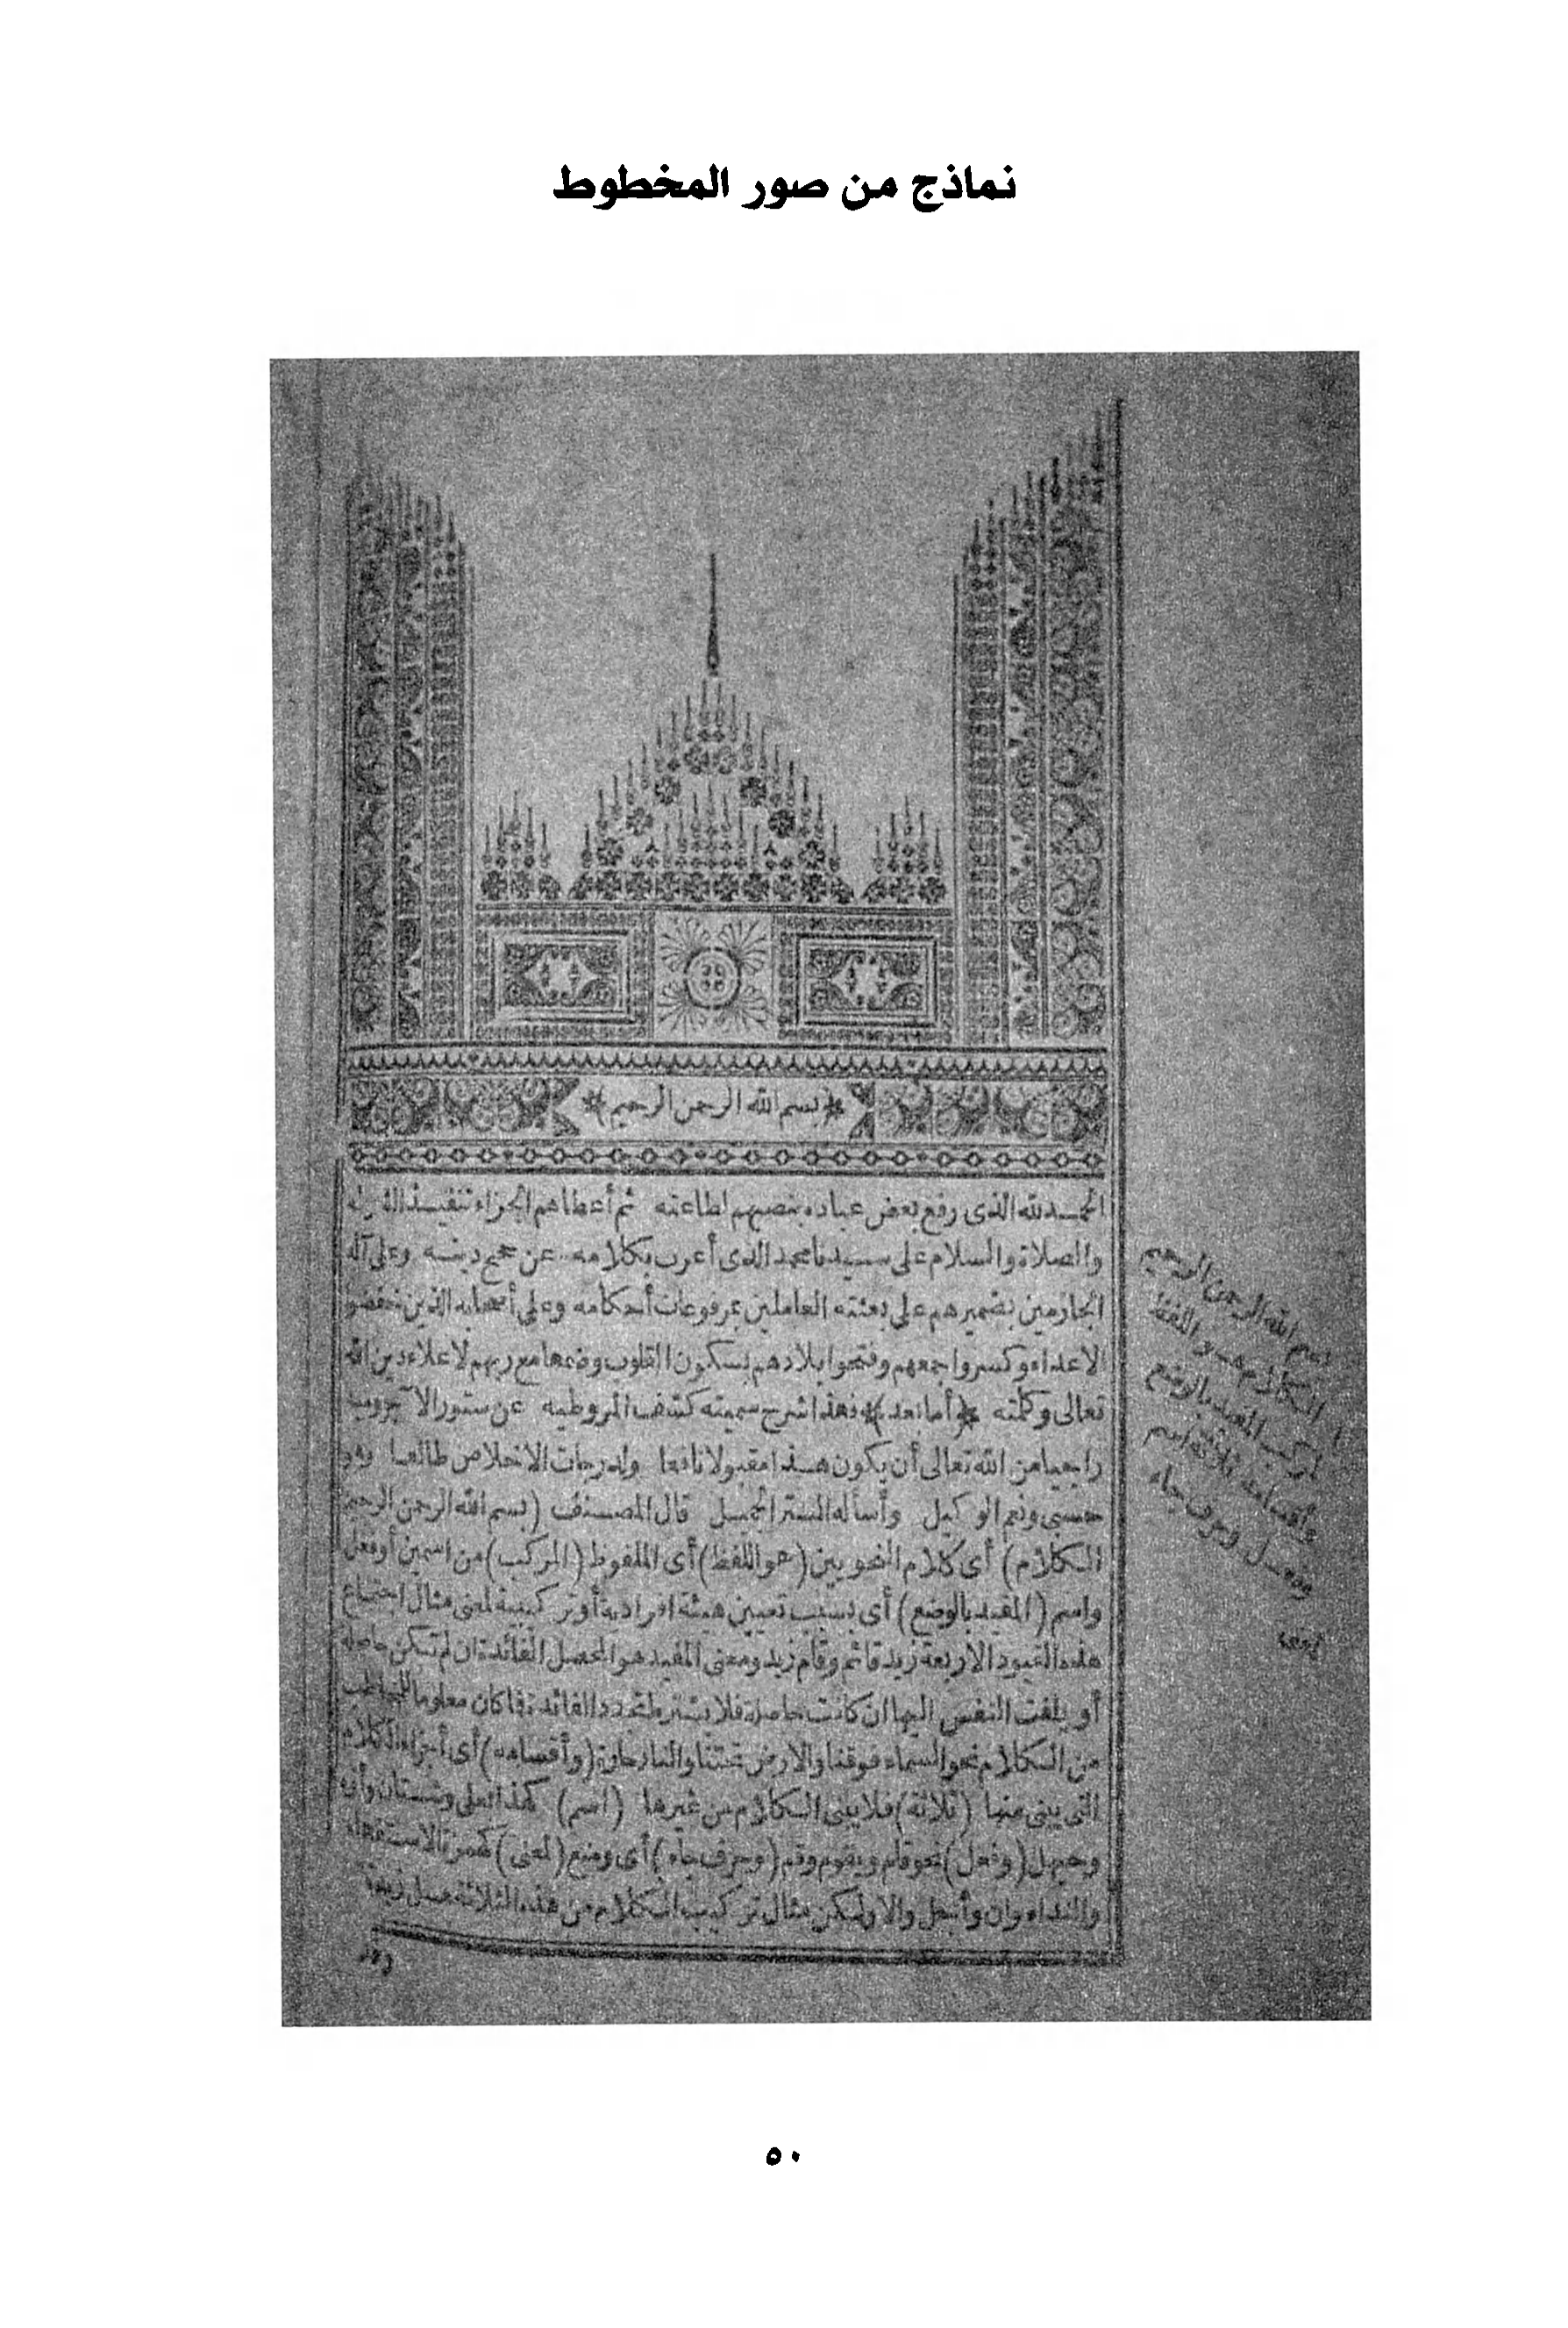 نماذج من صور المخطوط
﴿بسم الله الرحمن الرحيم﴾
الحمد لله الذى رفع بعض عباده بنصبهم لطاعته ثم أعطاهم الجزاء
والصلاة والسلام على سيدنا محمد الذى أعرب بكلامه عن صحيح دينه وعلى آله
الجازمين بضميرهم على بعثته العاملين بمرفوعات أحكامه وعلى أصحابه الذين خفضوا
الاعداء وكسروا جمعهم وفتحوا بلادهم بسكون القلوب وضمها مع ربهم لاعلاء دين الله
تعالى وكلمته ﴿أما بعد﴾ فهذا شرح سميته كشف المروطيه عن ستور الآجروميه
راجيا من الله تعالى أن يكون هذا مقبولا نافعا ولدرجات الاخلاص طالعا وهو
حسبى ونعم الوكيل وأسأله الستر الجميل قال المصنف (بسم الله الرحمن الرحيم
الكلام) أى كلام النحويين (هو اللفظ) أى الملفوظ (المركب) من اسمين أو فعل
واسم (المفيد بالوضع) أى بسبب تعيين هيئة افرادية أو تركيبية لمعنى مثال اجتماع
هذه القيود الاربعة زيد قائم وقام زيد ومعنى المفيد هو المحصل الفائدة ان لم تكن حاصلة
أو يلفت النفس اليها ان كانت حاصلة فلا يشترط تجدد الفائدة فما كان معلوما للمخاطب
من الكلام نحو السماء فوقنا والارض تحتنا والنار حارة (وأقسامه) أى أجزاء الكلام
التى يبنى منها (ثلاثة) فلا يبنى الكلام من غيرها (اسم) كهذا
وجهل (وفعل) نحو قام ويقوم وقم (وحرف جاء) أى وضع (لمعنى) كهمزة الاستفهام
والنداء وان مثال تركيب الكلام من هذه الثلاثة
بسم الله الرحمن الرحيم
الكلام هو اللفظ
المركب المفيد بالوضع
وأقسامه ثلاثة اسم
وفعل وحرف جاء
لمعنى
٥٠